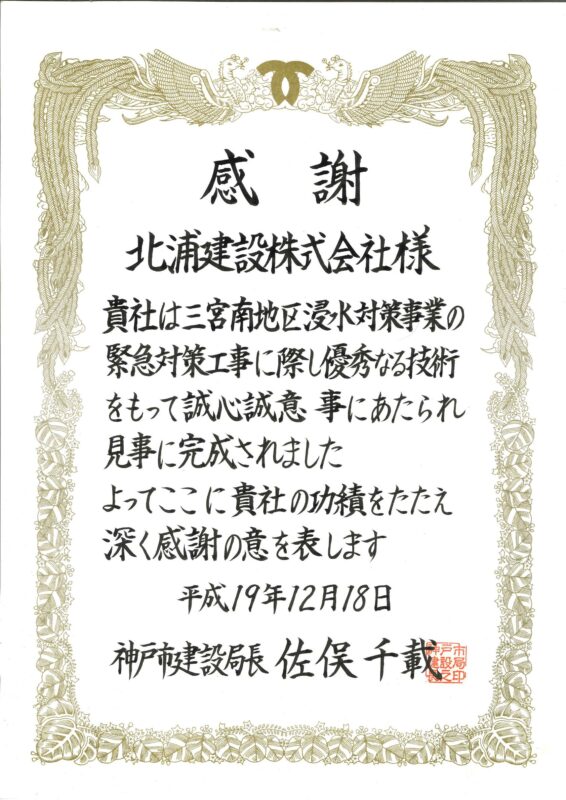 感謝
北浦建設株式会社様
貴社は三宮南地区浸水対策事業の
緊急対策工事に際し優秀なる技術
をもって誠心誠意 事にあたられ
見事に完成されました
よってここに貴社の功績をたたえ
深く感謝の意を表します
平成19年12月18日
神戸市建設局長 佐俣千載
神戸市建設局長之印